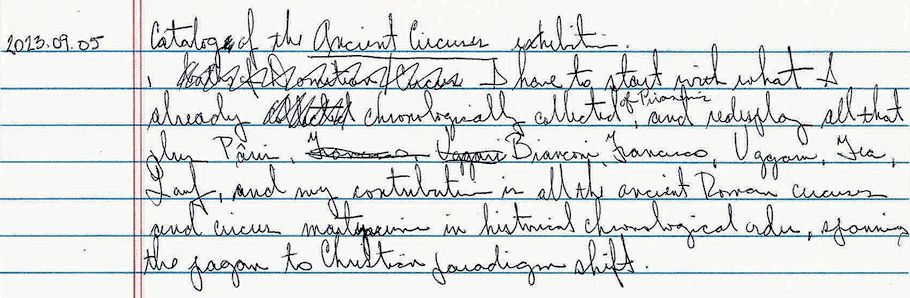 2023.09.05 Catalog of the Ancient Circuses exhibition.
I have to start with what I
already chronologically collected of Piranesi's, and redisplay all that
plus Pâris, Bianconi, Francesco, Uggeri, Fea,
and my contribution is all the ancient Roman circuses
and circus martyriums in historical chronological order, spanning
the pagan to Christian paradigm shift.